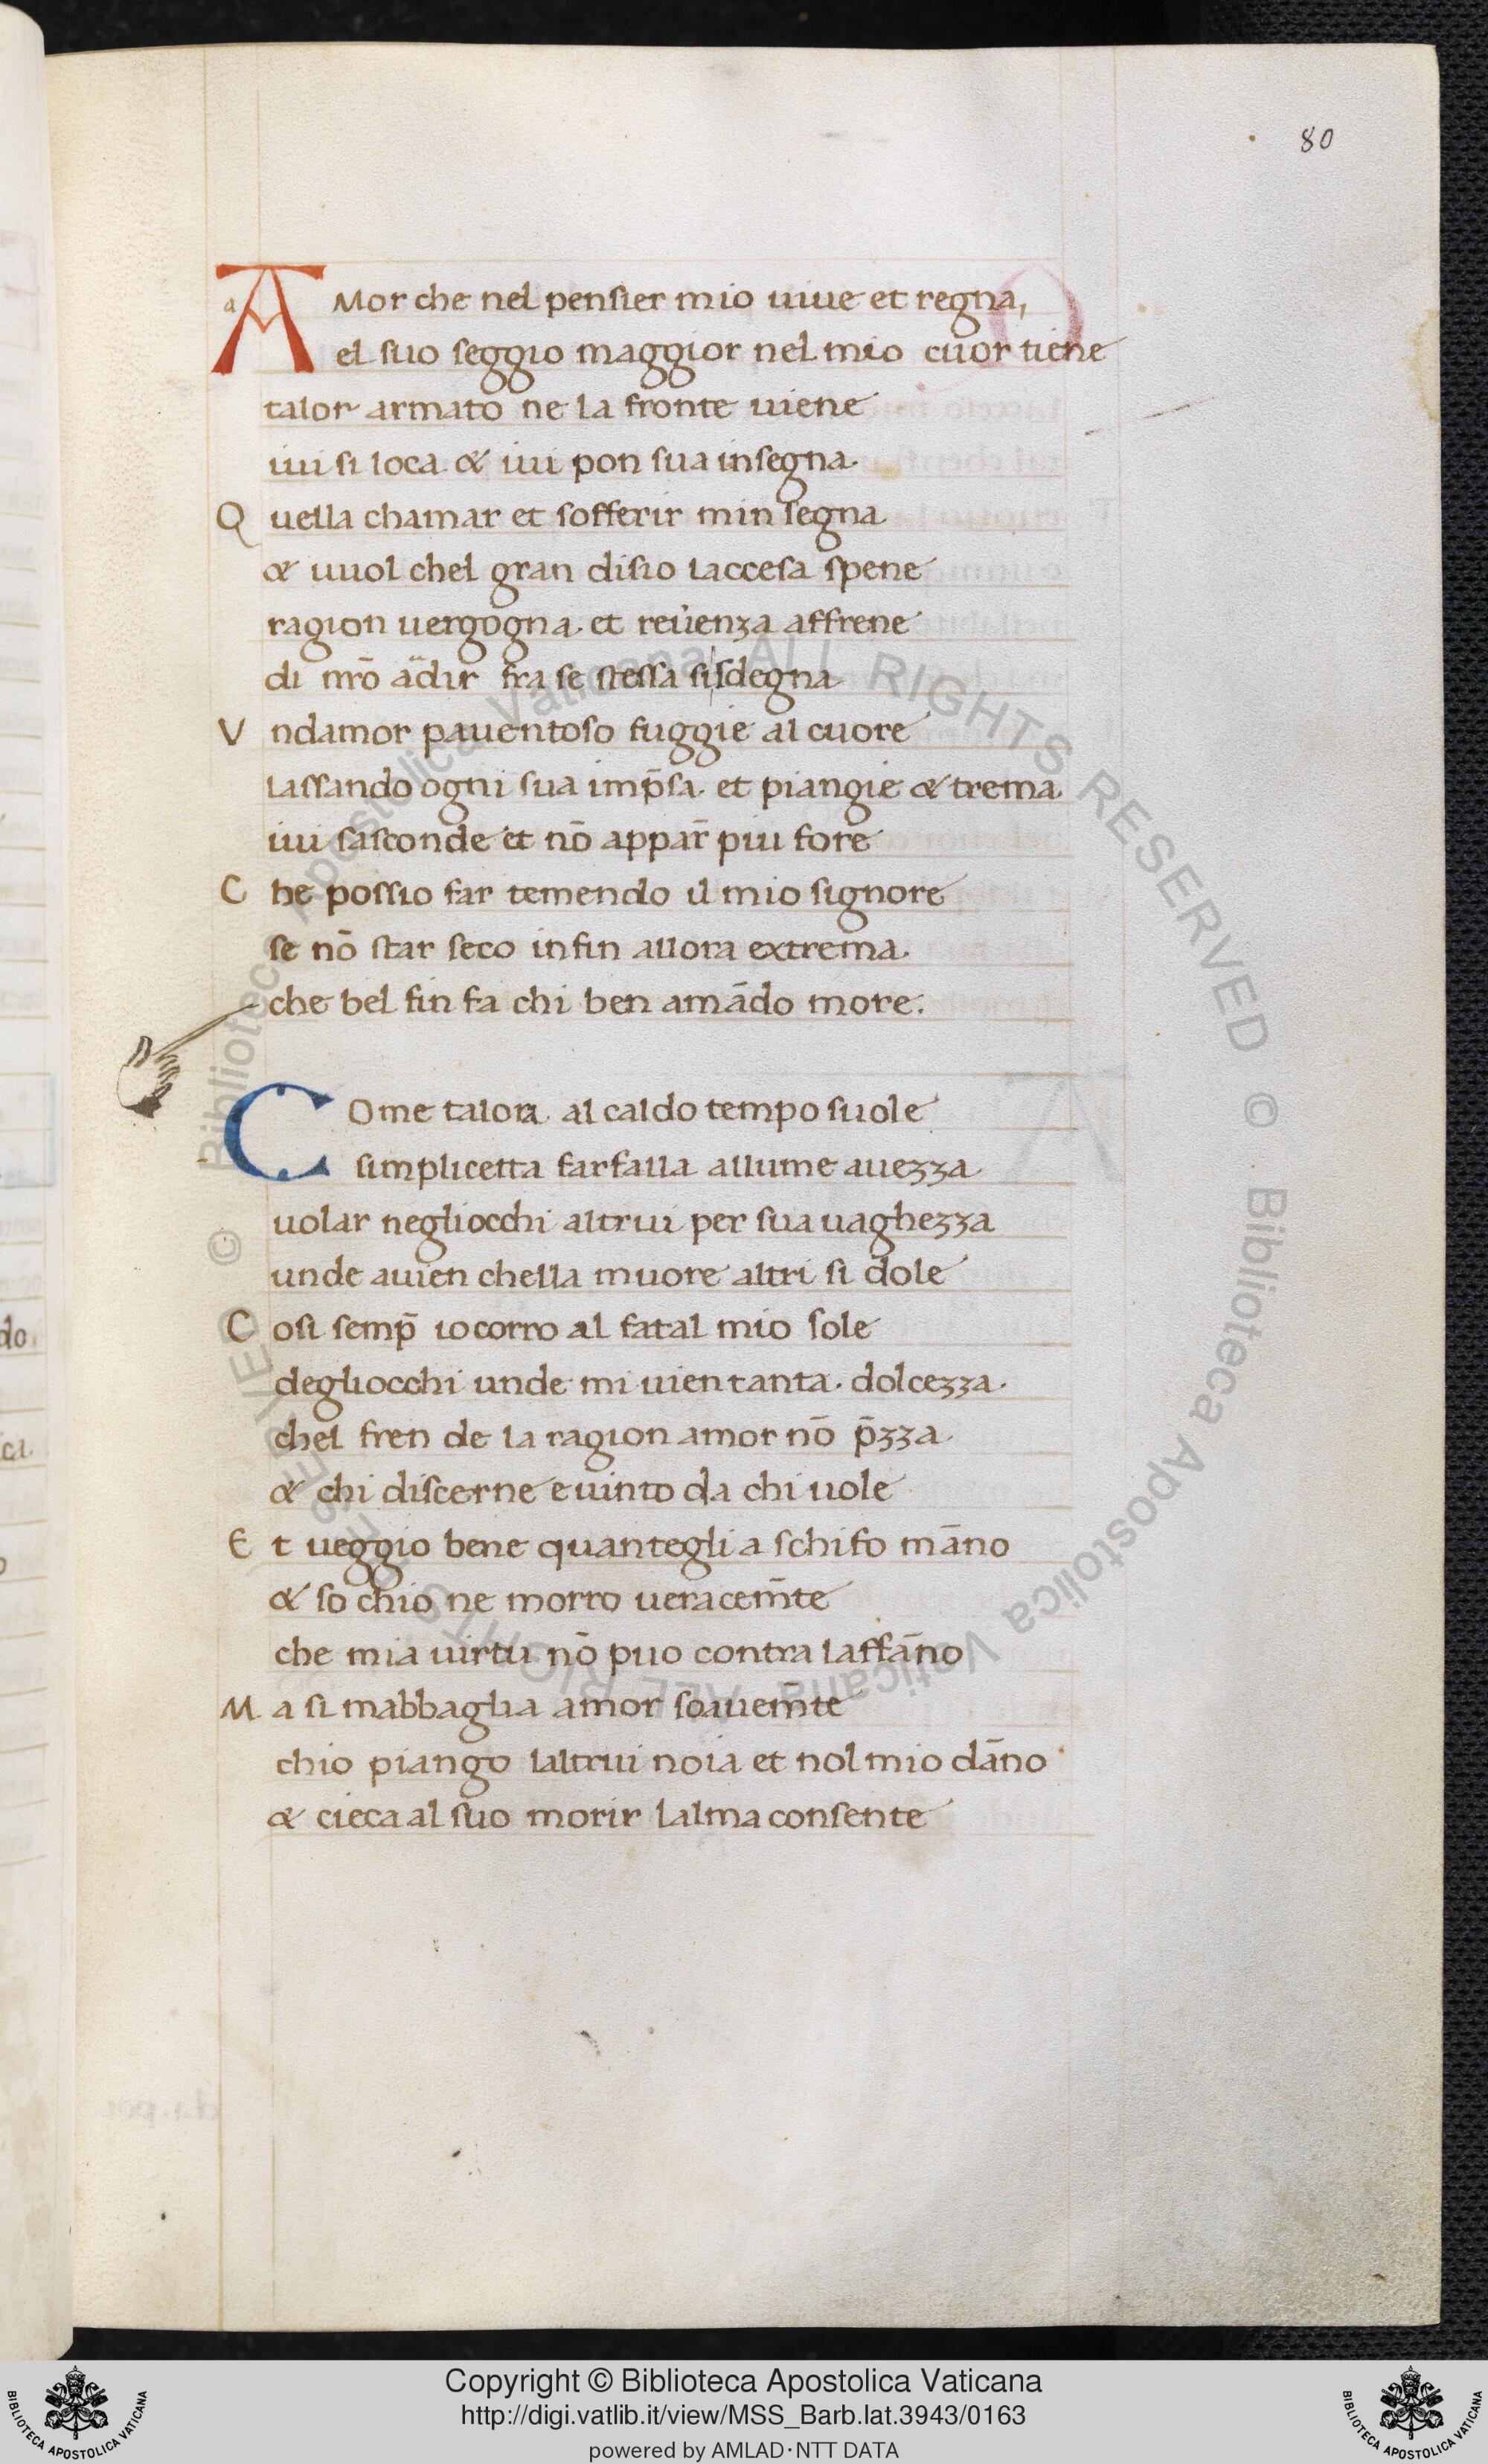 80
AMor che nel pensier mio uiue et regna,
el suo seggio maggior nel mio cuor tiene
talor armato ne la fronte uiene
iui si loca & iui pon sua insegna.
Quella chamar et sofferir min segna
& uuol chel gran disio laccesa spene
ragion uergogna. et reuenza affrene
di nrō adir fra se stessa si sdegna
Vndamor pauentoso fuggie al cuore
lassando ogni sua imp̄sa. et piangie & trema.
iui sasconde et nō appar̄ piu fore
Che possio far temendo il mio signore
se nō star seco infin allora extrema.
che bel fin fa chi ben amādo more.
COme talora. al caldo tempo suole
simplicetta farfalla allume auezza
uolar negliocchi altrui per sua uaghezza
unde auien chella muore altri si dole
Cosi semp̄ io corro al fatal mio sole
degliocchi unde mi uien tanta. dolcezza.
chel fren de la ragion amor nō p̄zza.
& chi discerne e uinto da chi uole
Et ueggio bene quantegli a schifo māno
& so chio ne morro ueracem̄te
che mia uirtu nō puo contra laffāno
Ma si mabbaglia amor soauem̄te
chio piango laltrui noia et nol mio dāno
& cieca al suo morir lalma consente
do.
ca.
© Biblioteca Apostolica Vaticana ALL RIGHTS RESERVED © Biblioteca Apostolica Vaticana ALL RIGHTS RESERVED
Copyright © Biblioteca Apostolica Vaticana
http://digi.vatlib.it/view/MSS_Barb.lat.3943/0163
powered by AMLAD·NTT DATA
BIBLIOTECA APOSTOLICA VATICANA
BIBLIOTECA APOSTOLICA VATICANA